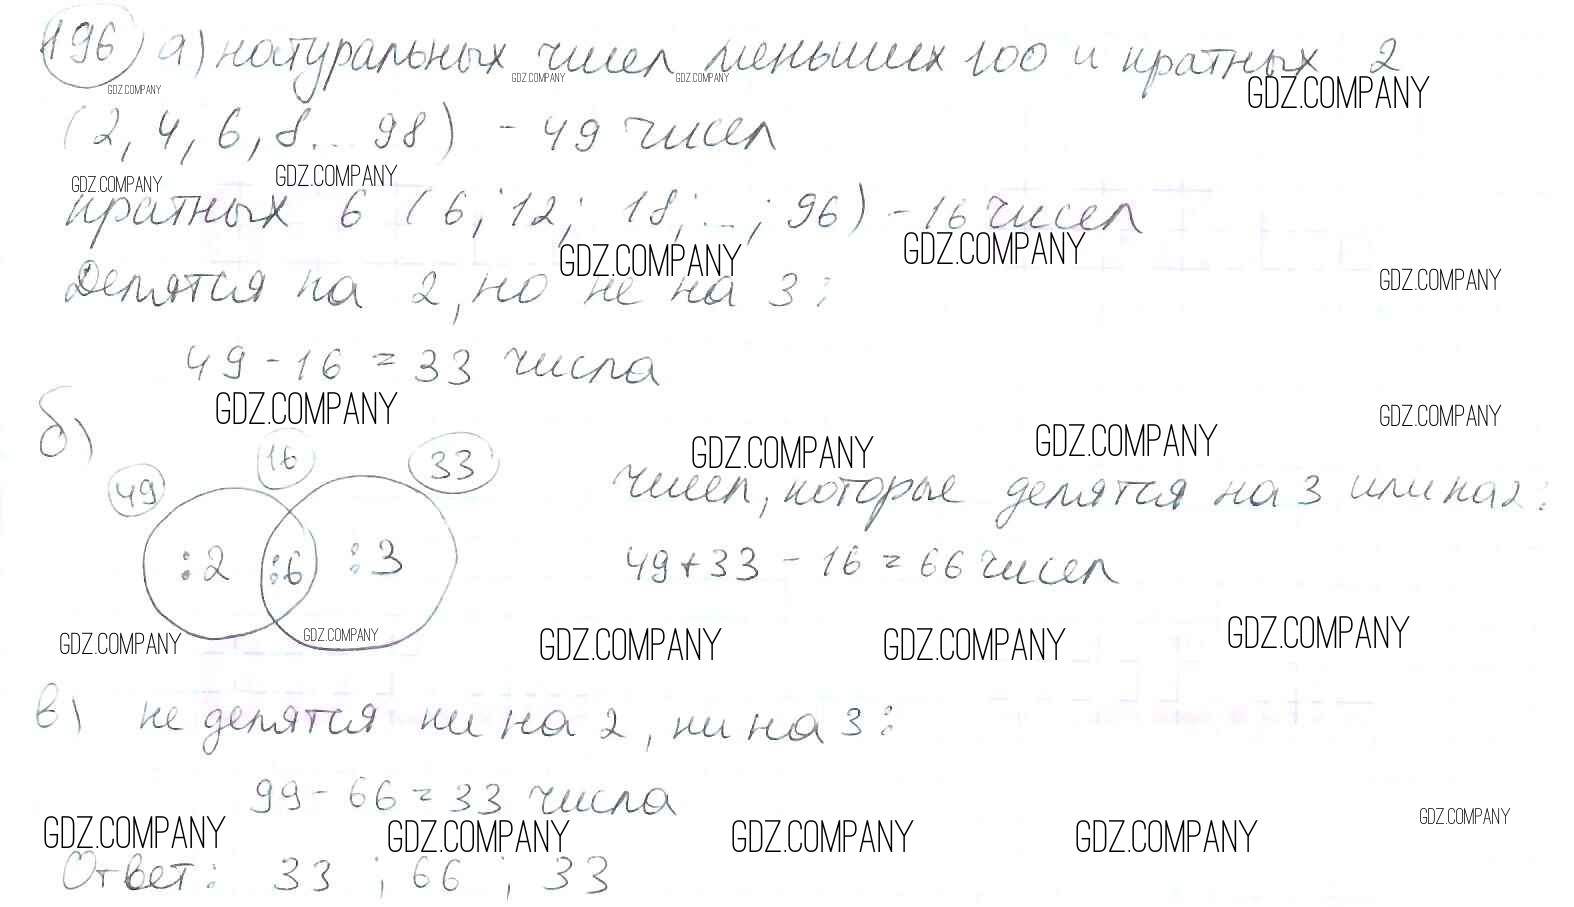 196 а) натуральных чисел меньших 100 и кратных 2
GDZ.COMPANY GDZ.COMPANY GDZ.COMPANY GDZ.COMPANY
(2, 4, 6, 8... 98) - 49 чисел
GDZ.COMPANY GDZ.COMPANY
кратных 6 (6; 12; 18; ...; 96) - 16 чисел
GDZ.COMPANY GDZ.COMPANY GDZ.COMPANY
Делятся на 2, но не на 3:
49 - 16 = 33 числа
GDZ.COMPANY GDZ.COMPANY
б)
GDZ.COMPANY GDZ.COMPANY
49 16 33
чисел, которые делятся на 3 или на 2:
:2 :6 :3
49 + 33 - 16 = 66 чисел
GDZ.COMPANY GDZ.COMPANY GDZ.COMPANY GDZ.COMPANY GDZ.COMPANY
в) не делятся ни на 2, ни на 3:
99 - 66 = 33 числа
GDZ.COMPANY GDZ.COMPANY GDZ.COMPANY GDZ.COMPANY GDZ.COMPANY
Ответ: 33 ; 66 ; 33